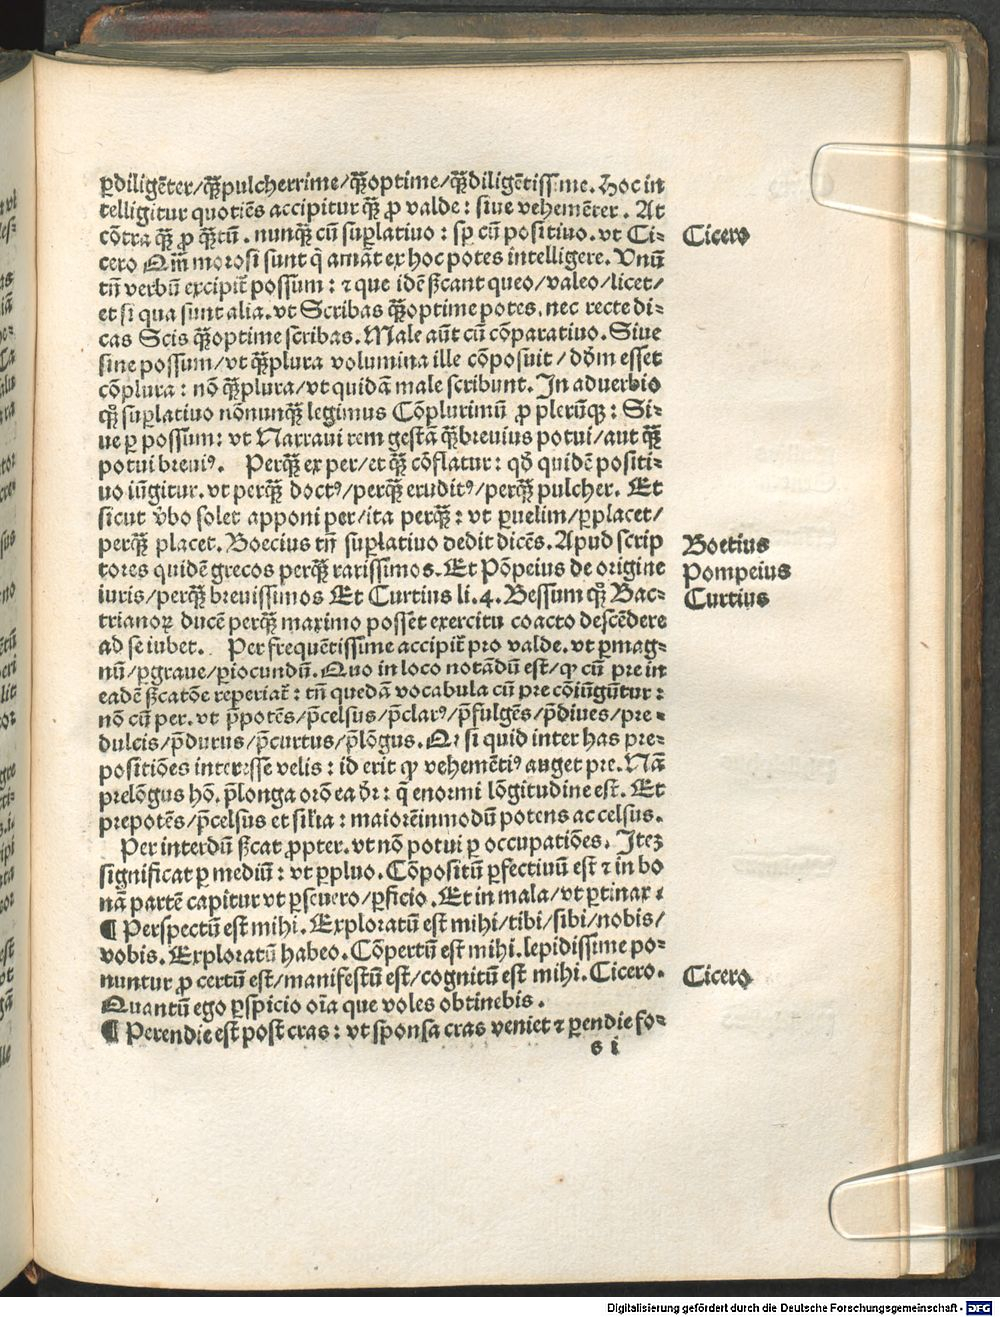 ꝑdiligẽter/qᷓꝫpulcherrime/qᷓꝫoptime/qᷓꝫdiligẽtissime. Hoc in
telligitur quotiẽs accipitur qᷓꝫ ꝓ valde: siue vehemẽter. At
cõtra qᷓꝫ ꝓ qᷓꝫtũ. nunqᷓꝫ cũ suꝑlatiuo: sꝫ cũ positiuo. vt Ci⸗
cero Qm̃ morosi sunt q̃ amãt ex hoc potes intelligere. Unũ
tñ verbũ excipit̃ possum: ⁊ que idẽ sĩcant queo/valeo/licet/
et si qua sunt alia. vt Scribas qᷓꝫoptime potes. nec recte di⸗
cas Scis qᷓꝫoptime scribas. Male aũt cũ cõparatiuo. Siue
sine possum/vt qᷓꝫplura volumina ille cõposuit/dõm esset
cõplura: nõ qᷓꝫplura/vt quidã male scribunt. In aduerbio
qꝫ̃ suꝑlatiuo nõnunqᷓꝫ legimus Cõplurimũ ꝓ plerũqꝫ: Si⸗
ue ꝑ possum: vt Narraui rem gestã qᷓꝫbreuius potui/aut qᷓꝫ
potui breuiꝰ. Perqᷓꝫ ex per/et qᷓꝫ cõflatur: qđ quidẽ positi⸗
uo iũgitur. vt perqᷓꝫ doctꝰ/perqᷓꝫ eruditꝰ/perqᷓꝫ pulcher. Et
sicut v̾bo solet apponi per/ita perqᷓꝫ: vt ꝑuelim/ꝑplacet/
perqᷓꝫ placet. Boecius tñ suꝑlatiuo dedit dicẽs. Apud scrip
tores quidẽ grecos perqᷓꝫ rarissimos. Et Põpeius de origine
iuris/perqᷓꝫ breuissimos Et Curtius li. 4. Bessum qꝫ̃ Bac⸗
trianoꝝ ducẽ perqᷓꝫ maximo possẽt exercitu coacto descẽdere
ad se iubet. Per frequẽtissime accipit̃ pro valde. vt ꝑmag⸗
nũ/ꝑgraue/ꝑiocundũ. Quo in loco notãdũ est/ꝙ cũ pre in
eadẽ sĩcatõe reperiat̃: tñ quedã vocabula cũ pre cõiũgũtur:
nõ cũ per. vt p̃potẽs/p̃celsus/p̃clarꝰ/p̃fulgẽs/p̃diues/pre⸗
dulcis/p̃durus/p̃curtus/p̃lõgus. Qꝛ si quid inter has pre⸗
positiões interesse velis: id erit ꝙ vehemẽtiꝰ auget pre. Nã
prelõgus hõ. p̃longa orõ ea dr̃: q̃ enormi lõgitudine est. Et
prepotẽs/p̃celsus et silĩa: maiorẽinmodũ potens ac celsus.
Per interdũ sĩcat ꝓpter. vt nõ potui ꝑ occupatiões. Iteꝫ
significat ꝑ mediũ: vt ꝑpluo. Cõpositũ ꝑfectiuũ est ⁊ in bo
nã partẽ capitur vt ꝑseuero/ꝑficio. Et in mala/vt ꝑtinax ⁊
¶ Perspectũ est mihi. Exploratũ est mihi/tibi/sibi/nobis/
vobis. Exploratũ habeo. Cõpertũ est mihi. lepidissime po⸗
nuntur ꝓ certũ est/manifestũ est/cognitũ est mihi. Cicero.
Quantũ ego ꝑspicio oĩa que voles obtinebis.
¶ Perendie est post cras: vt sponsa cras veniet ⁊ ꝑendie fo⸗
s i
Cicero
Boetius
Pompeius
Curtius
Cicero
Digitalisierung gefördert durch die Deutsche Forschungsgemeinschaft - DFG